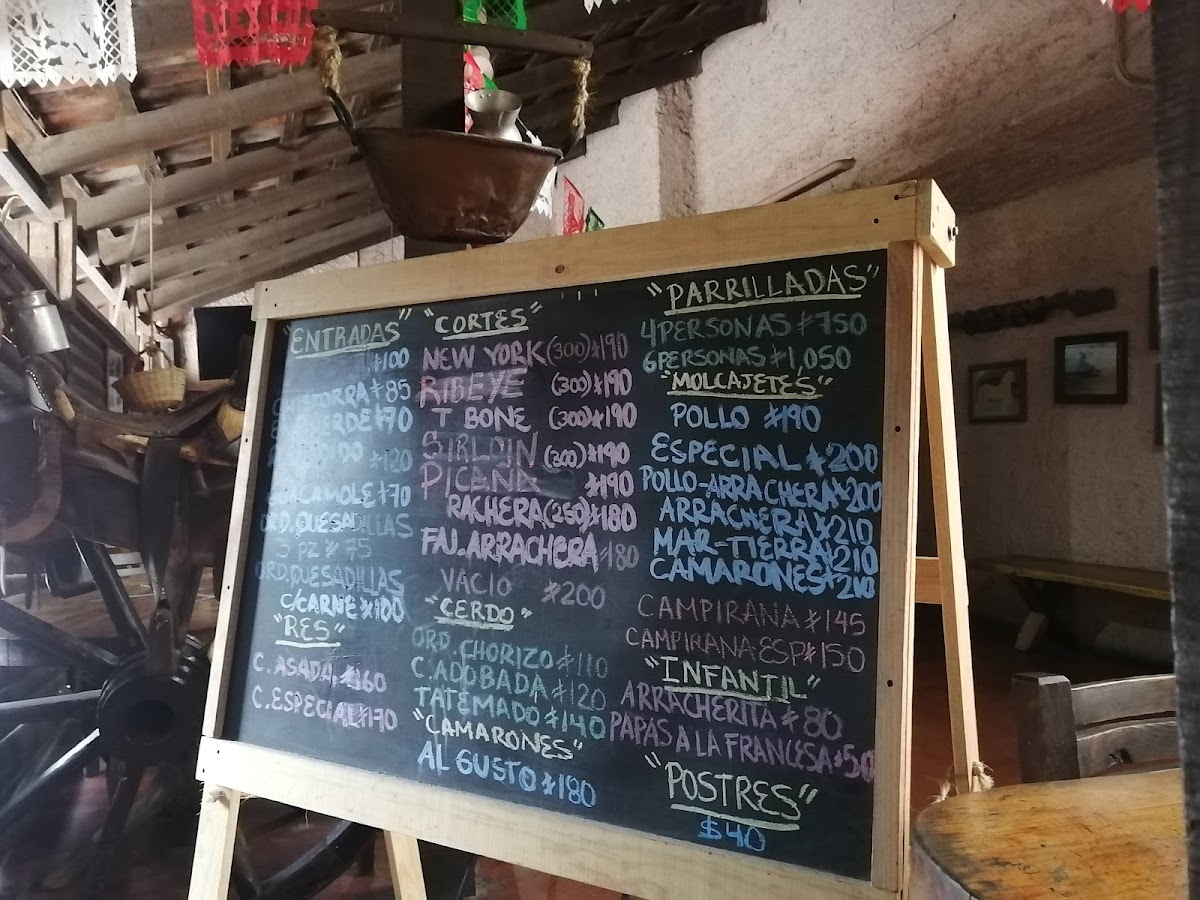 "ENTRADAS"
$100
$85
$70
$120
$70
ORD. QUESADILLAS
3 PZ $75
ORD. QUESADILLAS
C/CARNE $100
"RES"
C. ASADA $160
C. ESPECIAL $170
"CORTES"
NEW YORK (300) $190
RIBEYE (300) $190
T BONE (300) $190
SIRLOIN (300) $190
PICAÑA $190
RACHERA (250) $180
FAJ. ARRACHERA $180
VACIO $200
"CERDO"
ORD. CHORIZO $110
C. ADOBADA $120
TATEMADO $140
"CAMARONES"
AL GUSTO $180
"PARRILLADAS"
4 PERSONAS $750
6 PERSONAS $1,050
"MOLCAJETES"
POLLO $190
ESPECIAL $200
POLLO-ARRACHERA $200
ARRACHERA $210
MAR-TIERRA $210
CAMARONES $210
CAMPIRANA $145
CAMPIRANA ESP $150
"INFANTIL"
ARRACHERITA $80
PAPAS A LA FRANCESA $50
"POSTRES"
$40